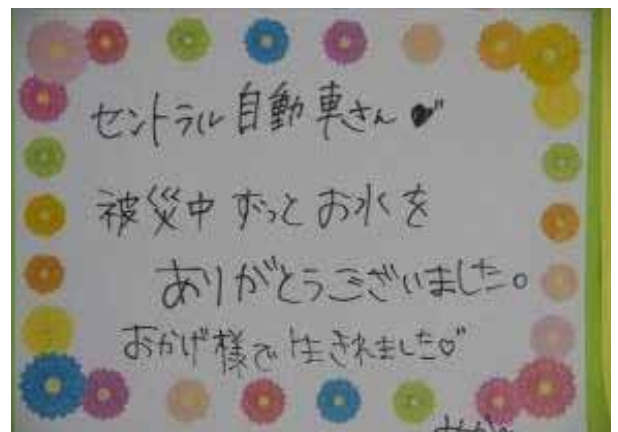 セントラル自動車さん♥
被災中ずっとお水を
ありがとうございました。
おかげ様で生きれました♡